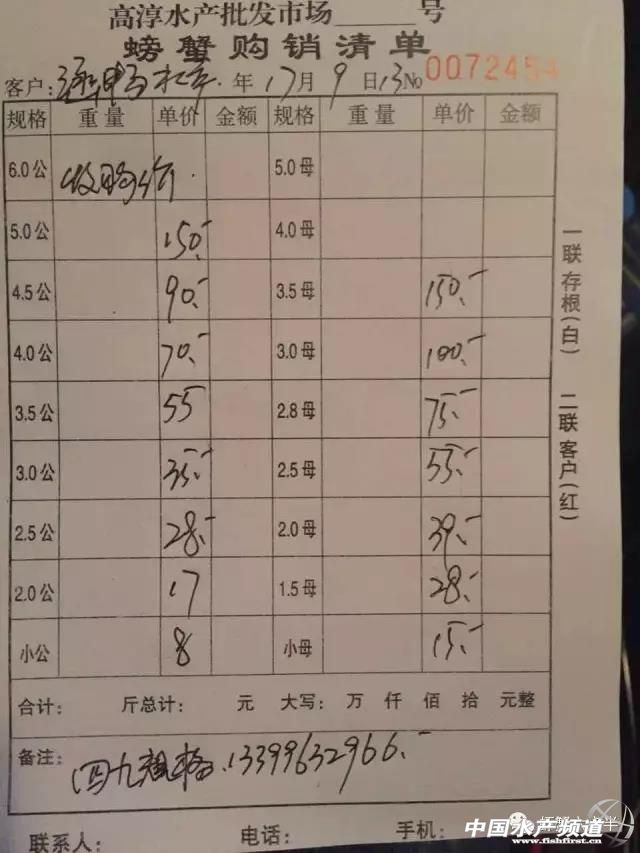 高淳水产批发市场______号
螃蟹购销清单
客户: 年 17 月 9 日 13 No 0072454
规格 重量 单价 金额 规格 重量 单价 金额
6.0公 收购价 5.0母
5.0公 150.- 4.0母
4.5公 90.- 3.5母 150.-
4.0公 70.- 3.0母 100.-
3.5公 55 2.8母 75.-
3.0公 35.- 2.5母 55.-
2.5公 28.- 2.0母 39.-
2.0公 17 1.5母 28.-
小公 8 小母 15.-
合计: 斤总计: 元 大写: 万 仟 佰 拾 元整
备注: 四九规格.13399632966.-
联系人: 电话: 手机:
一联存根(白) 二联客户(红)
中国水产频道
www.fishfirst.cn